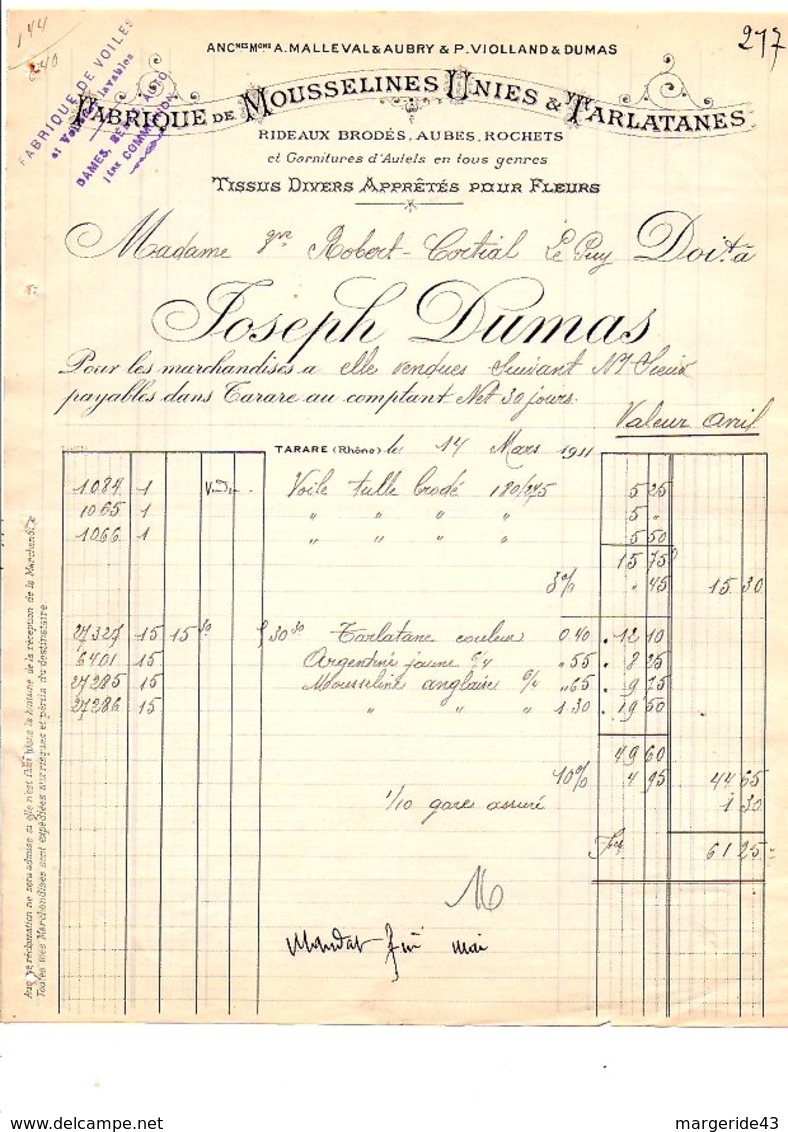 144
840
217
FABRIQUE DE VOILES
et Voilettes lavables
DAMES, BÉBÉS, AUTO
1ère COMMUNION
ANC.nes M.ons A. MALLEVAL & AUBRY & P. VIOLLAND & DUMAS
FABRIQUE DE MOUSSELINES UNIES & TARLATANES
RIDEAUX BRODÉS, AUBES, ROCHETS
et Garnitures d'Autels en tous genres
TISSUS DIVERS APPRÊTÉS POUR FLEURS
Madame Robert-Cortial Le Puy Doit à
Joseph Dumas
Pour les marchandises a elle vendues Suivant
payables dans Tarare au comptant Net 30 jours.
Valeur avril
TARARE (Rhône) le 14 Mars 1911
1084 1 Voile tulle brodé 180/275 5 25
1065 1 " " " " 5 "
1066 1 " " " " 5 50
15 75
3% " 45 15 30
27327 15 15 30 30 Tarlatane couleur 0.40 12 10
6401 15 Argentine jaune 6/4 " 55 8 25
27285 15 Mousseline anglaise 6/4 " 65 9 75
27286 15 " " " 1.30 19 50
49 60
10% 4 95 44 65
1/10 gare assuré 1 30
Frs 61 25
M
Mandat fin mai
Aucune réclamation ne sera admise si elle n'est faite dans la huitaine de la réception de la Marchandise
Toutes mes Marchandises sont expédiées aux risques et périls du destinataire.
margeride43